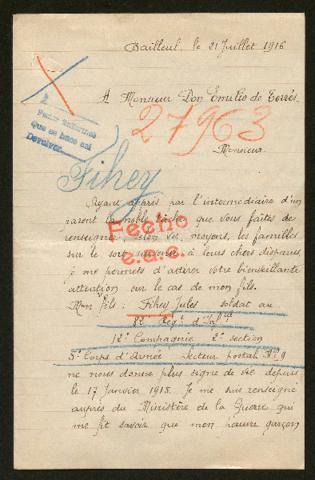 Bailleul, le 21 Juillet 1916
2
Pedir informes
Que se hace asi
Devolver.
A Monsieur Don Emilio de Torrès
27963
Monsieur
Fihey
Ayant appris par l'intermédiaire d'un
parent la noble tâche que vous faites de
renseigner, selon vos moyens, les familles
sur le sort à leurs chers disparus,
je me permets d'attirer votre bienveillante
attention sur le cas de mon fils.
Fecho
Mon fils : Fihey Jules soldat au
Reg. d'Inf
12e Compagnie 2e section
5e Corps d'Armée Secteur postal No 9
ne nous donne plus signe de vie depuis
le 17 Janvier 1915. Je me suis renseigné
auprès du Ministère de la Guerre qui
me fit savoir que mon pauvre garçon